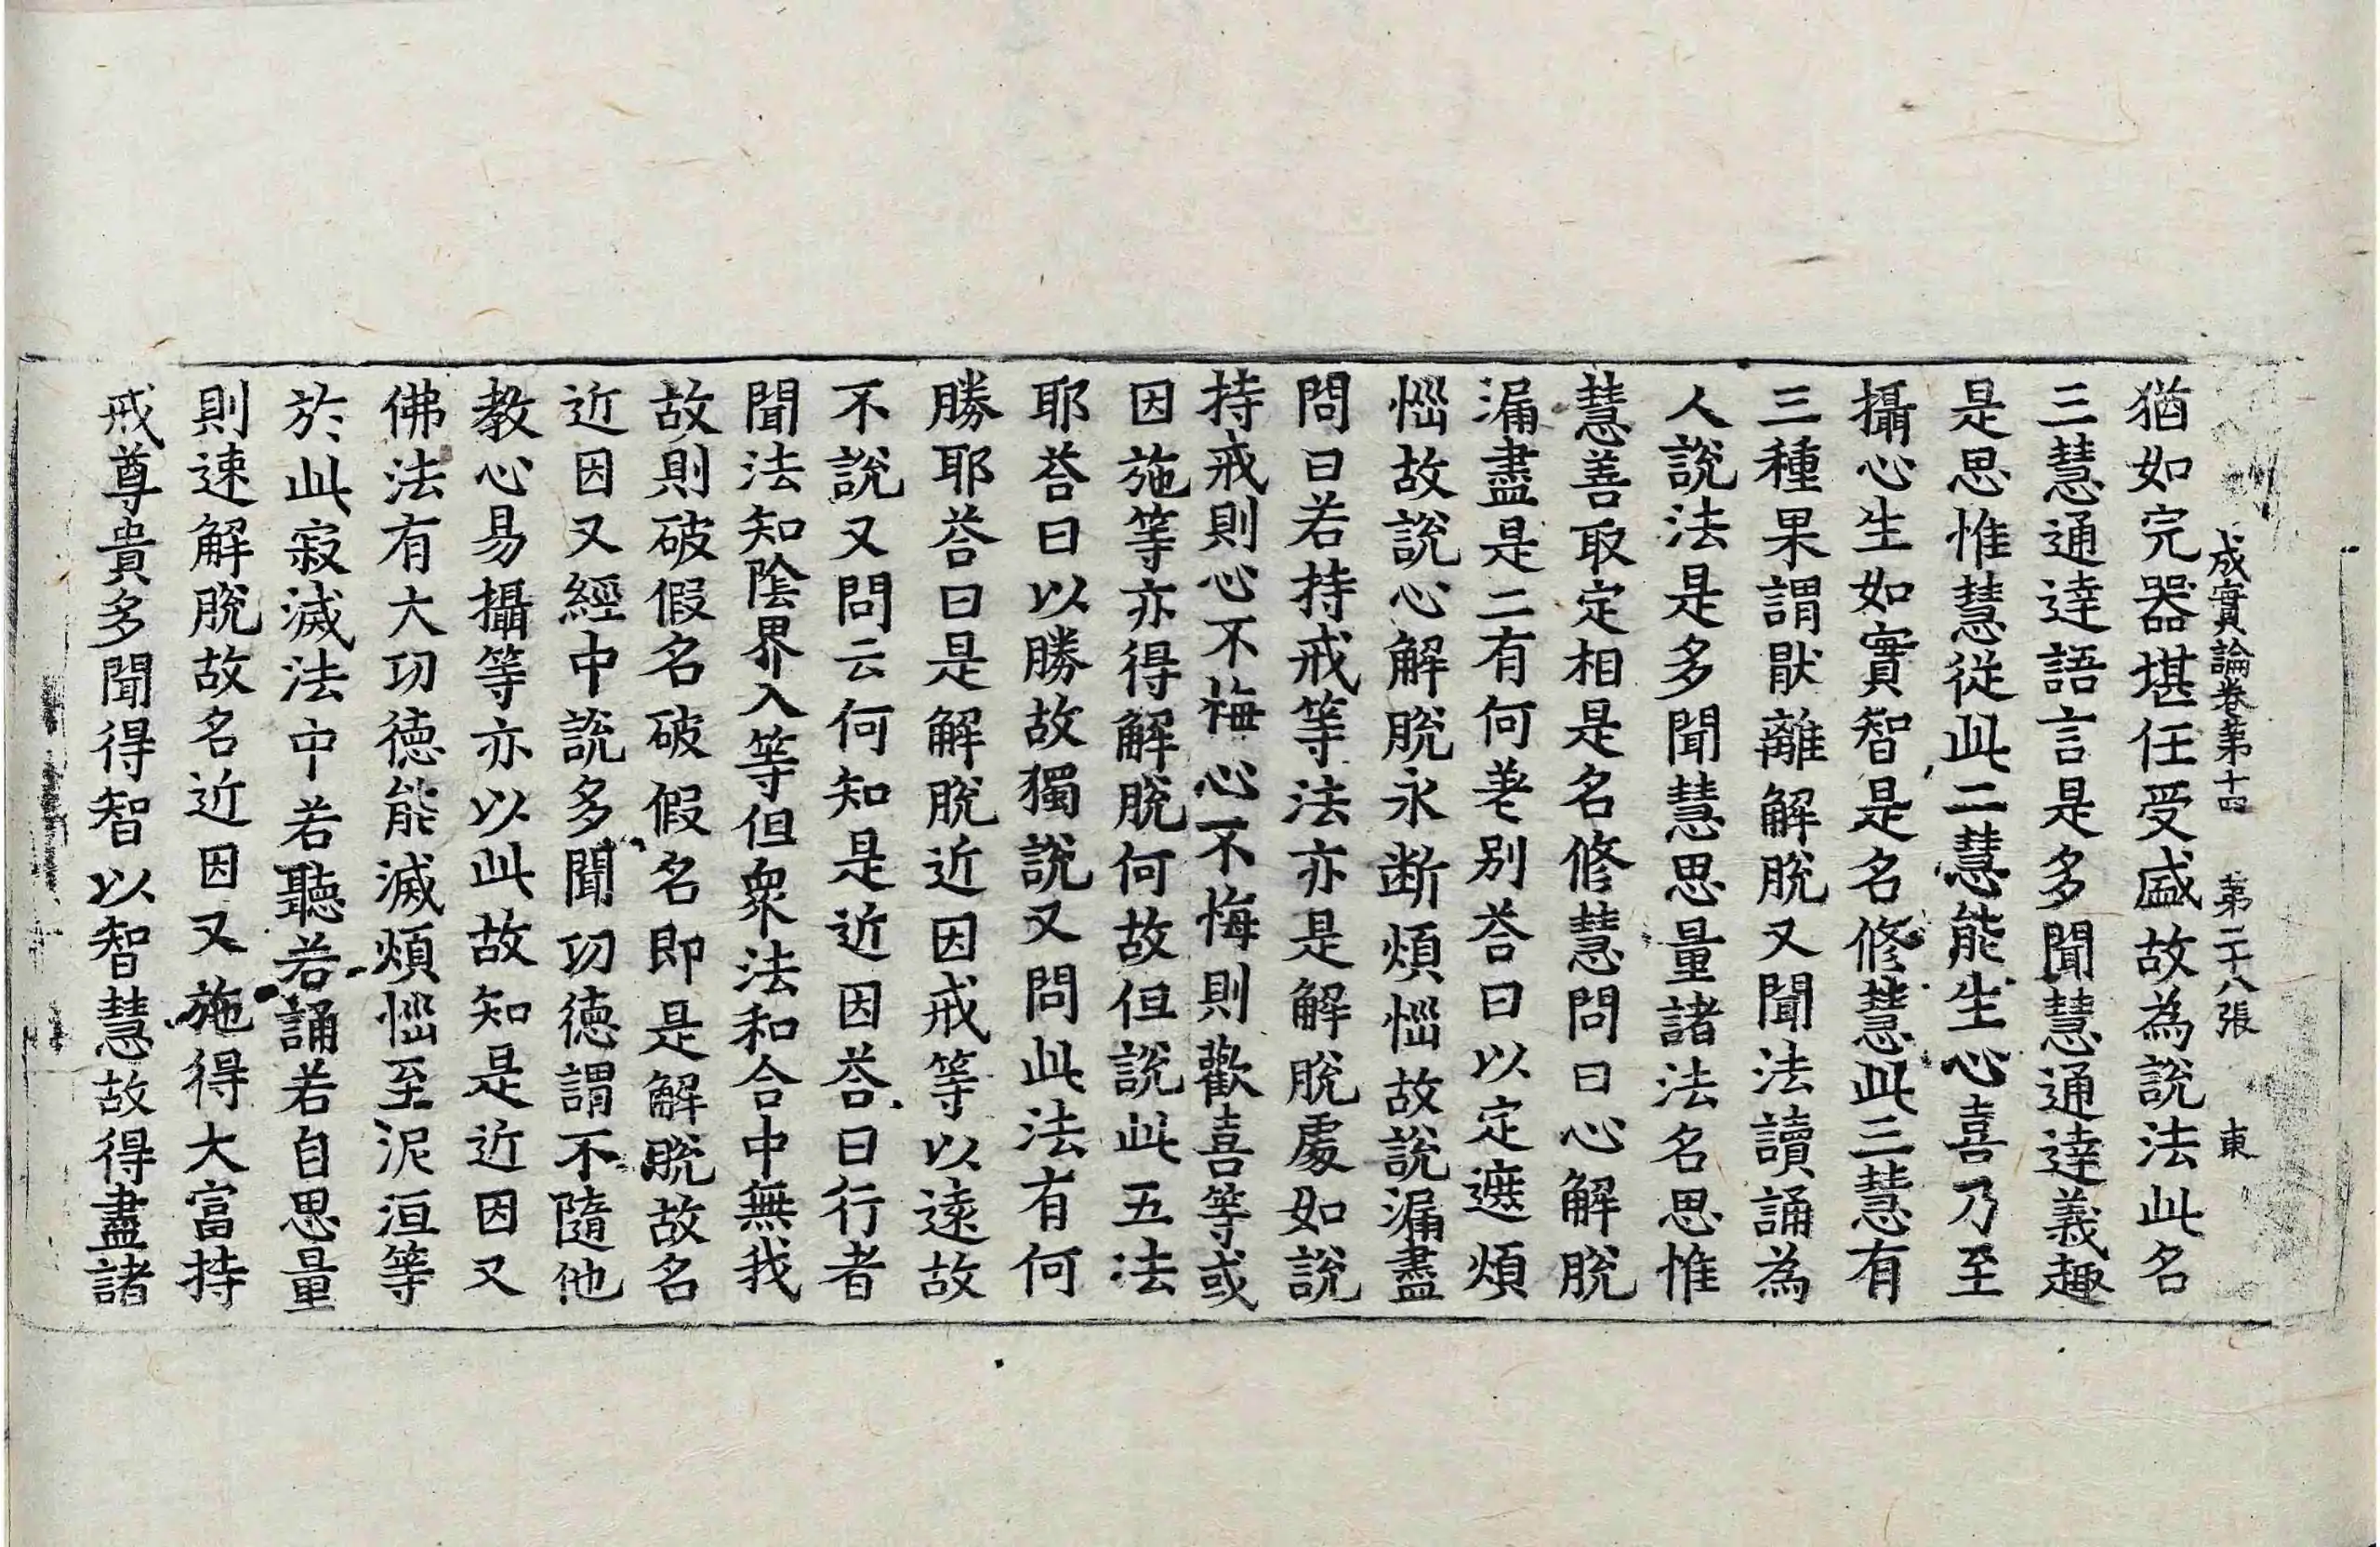 成實論卷第十四　第二十八張　東
猶如完器堪任受盛故為說法此名
三慧通達語言是多聞慧通達義趣
是思惟慧從此二慧能生心喜乃至
攝心生如實智是名修慧此三慧有
三種果謂猒離解脫又聞法讀誦為
人說法是多聞慧思量諸法名思惟
慧善取定相是名修慧問曰心解脫
漏盡是二有何差別荅曰以定遮煩
惱故說心解脫永断煩惱故說漏盡
問曰若持戒等法亦是解脫處如說
持戒則心不悔心不悔則歡喜等或
因施等亦得解脫何故但說此五法
耶荅曰以勝故獨說又問此法有何
勝耶荅曰是解脫近因戒等以遠故
不說又問云何知是近因荅曰行者
聞法知陰界入等但眾法和合中無我
故則破假名破假名即是解脫故名
近因又經中說多聞功德謂不隨他
教心易攝等亦以此故知是近因又
佛法有大功德能滅煩惱至泥洹等
於此寂滅法中若聽若誦若自思量
則速解脫故名近因又施得大富持
戒尊貴多聞得智以智慧故得盡諸